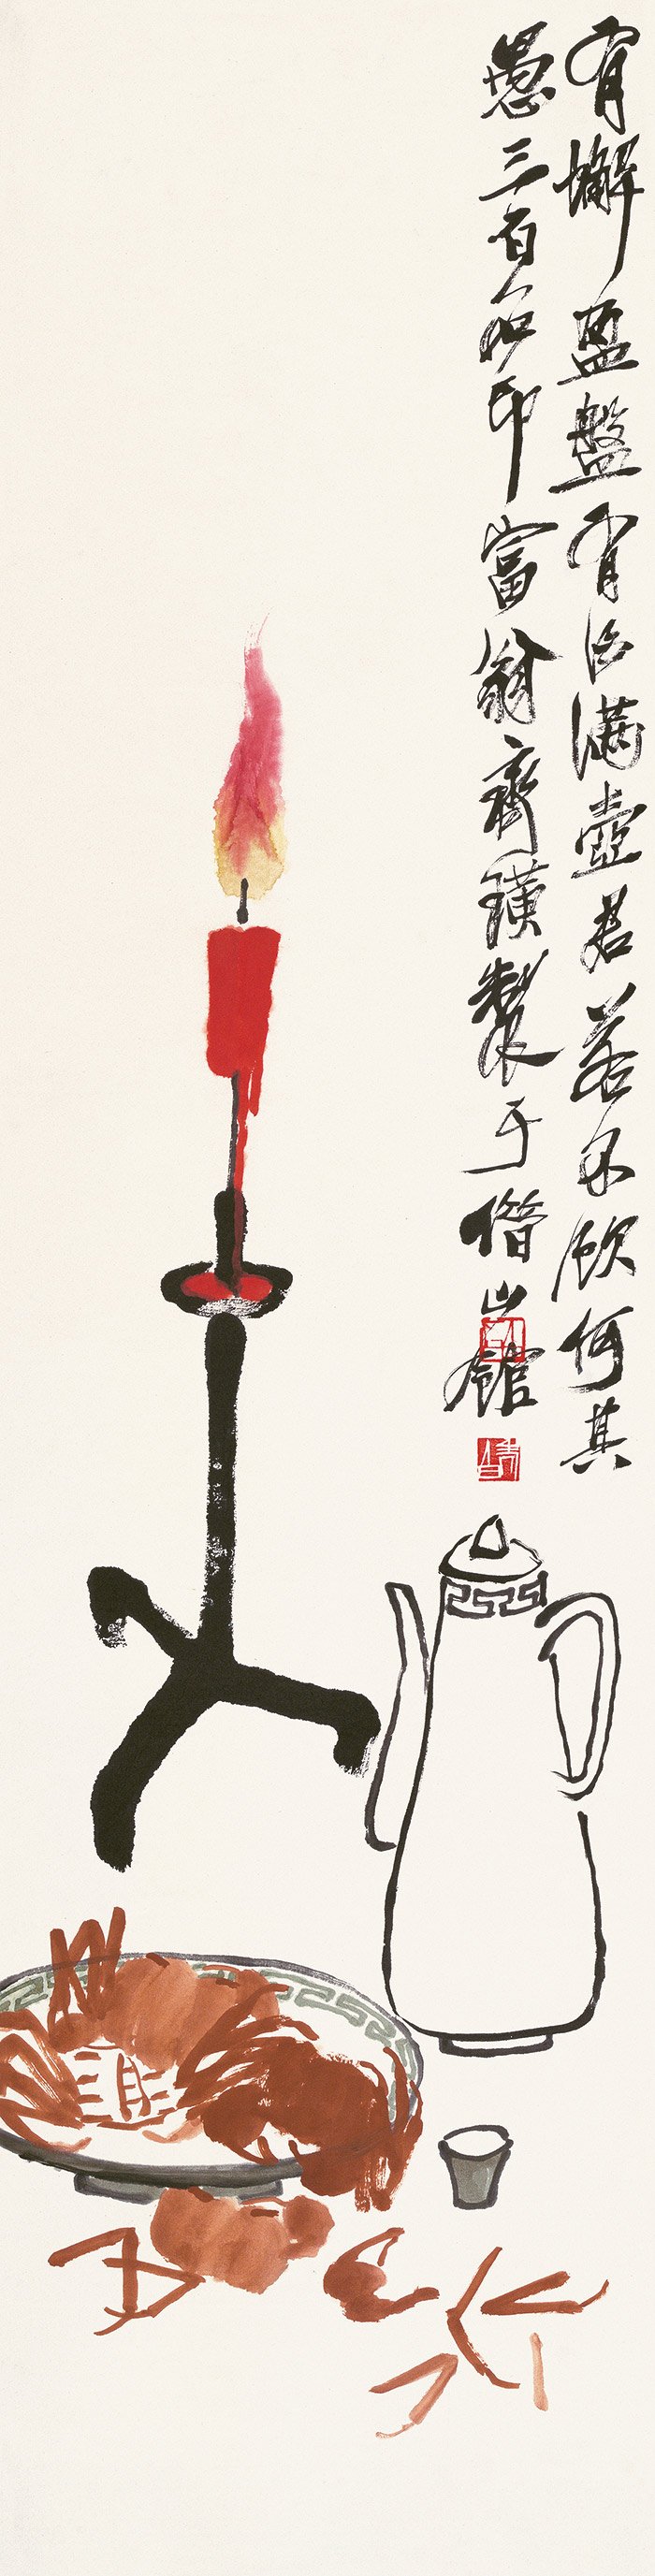 有蠏盈盤有酒满壺君若不飲何其
愚三百石印富翁齊璜製于借山館